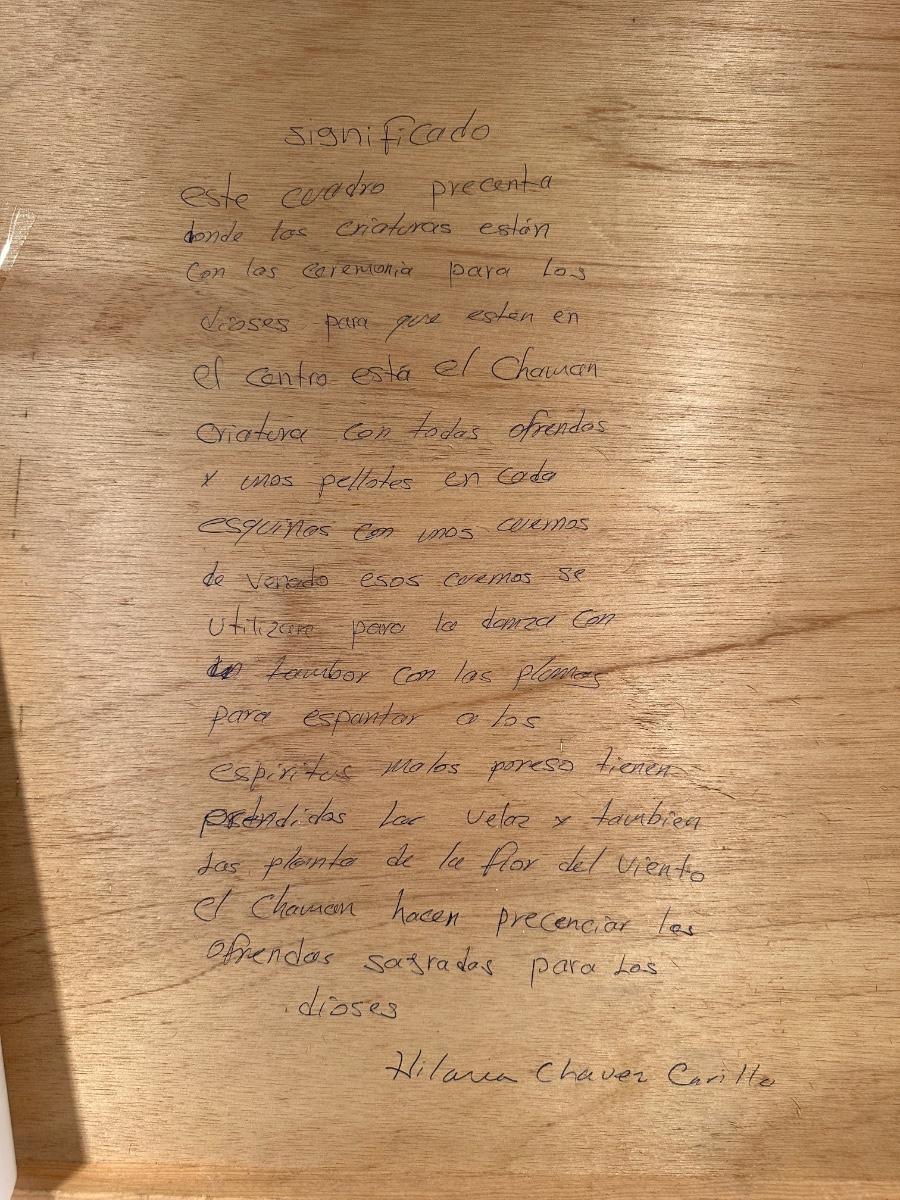 significado
este cuadro precenta
donde las criaturas están
con las ceremonia para los
dioses para que estén en
el centro está el Chaman
criatura con todas ofrendas
y unos pellotes en cada
esquinas con unos cuernos
de venado esos cuernos se
utilizan para la danza con
un tambor con las plumas
para espantar a los
espiritus malos poreso tienen
prendidas las velas y tambien
las planta de la flor del viento
el Chaman hacen precenciar las
ofrendas sagradas para los
dioses
Hilaria Chavez Carillo